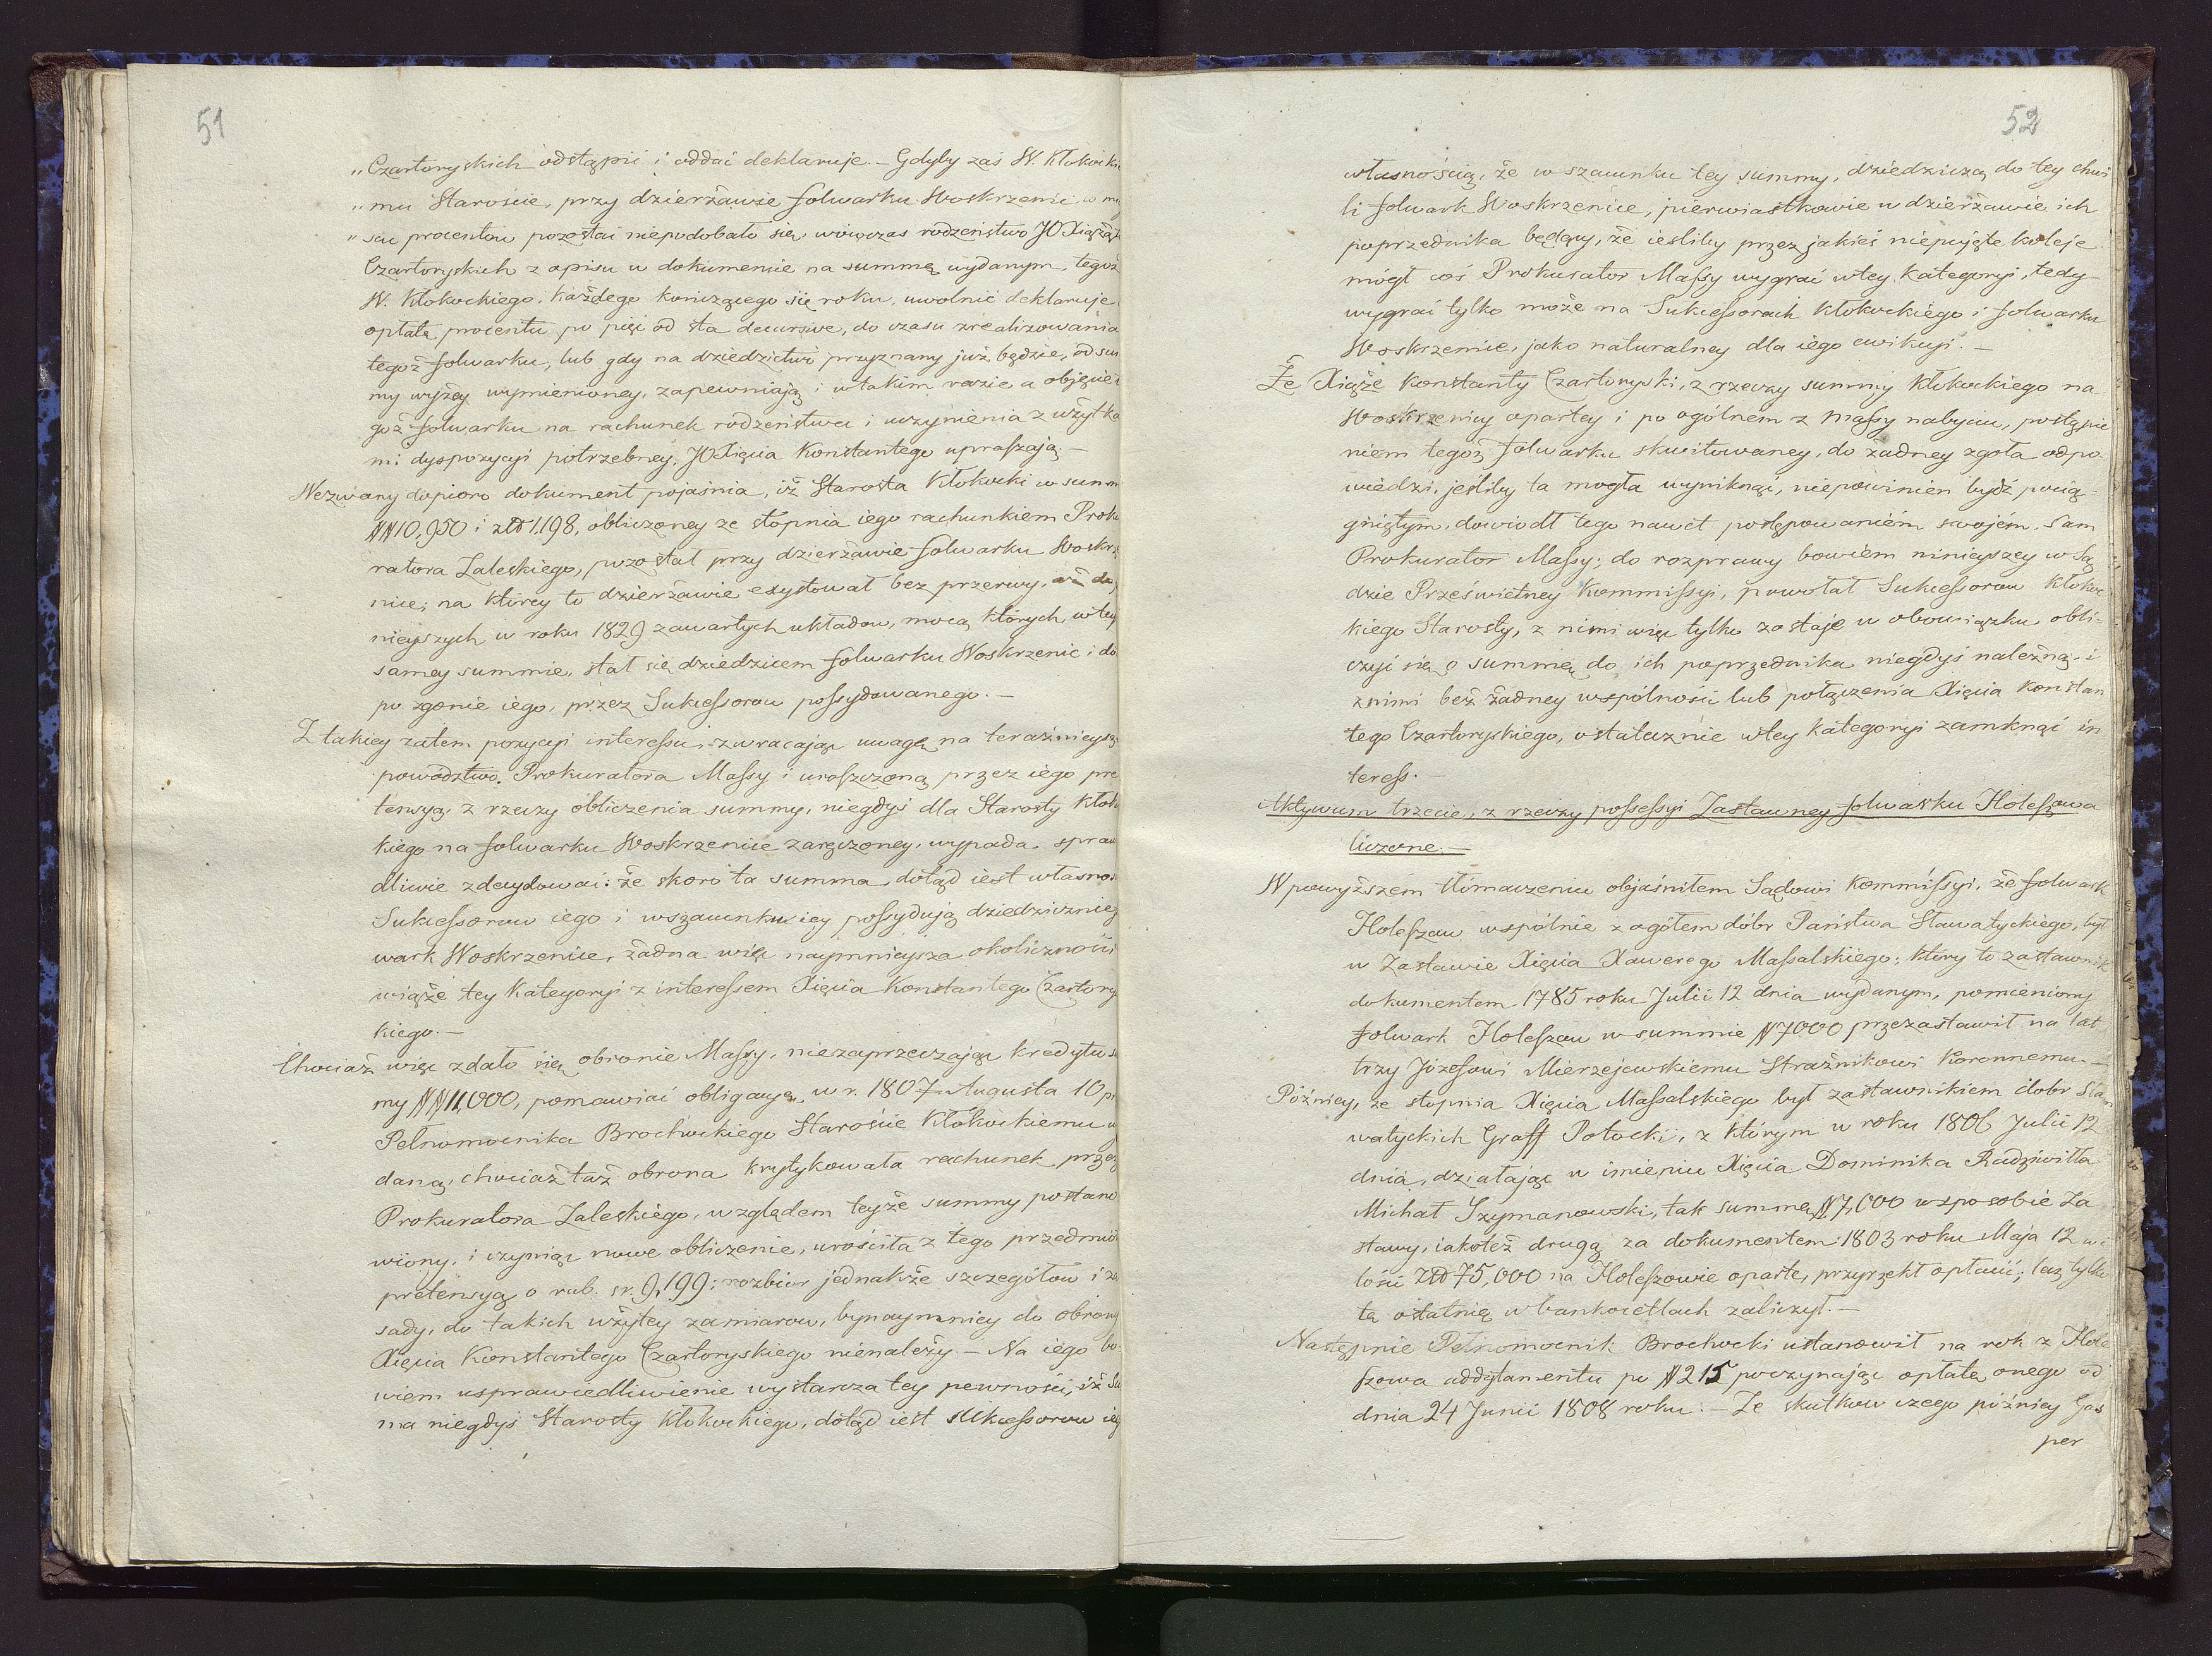 51
„Czartoryskich odstąpić i oddać deklaruje. — Gdyby zaś W. Kłokocki
„mu Staroście, przy dzierżawie folwarku Woskrzenic w
„sca procentow pozostać niepodobało się, wówczas rodzeństwo JO Xiążąt
Czartoryskich z opisu w dokumencie na summę wydanym, tegoż
W. Kłokockiego, każdego kończącego się roku, uwolnić deklaruje
opłatę procentu po pięć od sta decursive, do czasu zrealizowania
tegoż folwarku, lub gdy na dziedzictwo przyznany już będzie, od sum
my wyżey wymienioney, zapewniają i w takim razie a objęcie
goż folwarku na rachunek rodzeństwa i uczynienia z użytka
mi dyspozycyi potrzebney, JO Xięcia Konstantego upraszają. —
Nezwany dopioro dokument pojaśnia, iż Starosta Kłokocki w summ
## 10,950 i złt 1.198, obliczoney ze stopnia iego rachunkiem Proku
ratora Zaleskiego, pozostał przy dzierżawie folwarku Woskrze
nice; na którey to dzierżawie exystował bez przerwy, aż do
nieyszych w roku 1829 zawartych układow, mocą których, w tey
samey summie, stał się dziedzicem folwarku Woskrzenic i do
po zgonie iego, przez Sukcessorow possydowanego. —
Z takiey zatem pozycyi interessu, zwracając uwagę na teraźnieysze
powództwo Prokuratora Massy i uroszczoną przez iego pre
tensyą z rzeczy obliczenia summy, niegdyś dla Starosty Kłokoc
kiego na folwarku Woskrzenice zaręczoney, wypada spraw
dliwie zdecydować: że skoro ta summa dotąd iest własnoś
Sukcessorow iego i w szacunku iey possydują dziedzicznie
wark Woskrzenice, żadna więc naymnieysza okoliczność
wiąże tey kategoryi z interessem Xięcia Konstantego Czartorys
kiego. —
Chociaż więc zdało się obronie Massy, niezaprzeczając kredytu su
my ## 11,000, pomawiać obligacyą, w r. 1807 Augusta 10 p
Pełnomocnika Brochockiego Staroście Kłokockiemu w
daną, chociaż taż obrona krytykowała rachunek przez
Prokuratora Zaleskiego, względem teyże summy postano
wiony, i czyniąc nowe obliczenie, urościła z tego przedmio
pretensyą o rub. sr. 9,199: rozbior jednakże szczegółow i za
sady, do takich użytey zamiarow, bynaymniey do obrony
Xięcia Konstantego Czartoryskiego nienależy. — Na iego bo-
wiem usprawiedliwienie wystarcza tey pewności, iż Su
ma niegdyś Starosty Kłokockiego, dotąd iest sukcessorow ieg
52
własnością, że w szacunku tey summy, dziedziczą do tey chwi
li folwark Woskrzenice, pierwiastkowie w dzierżawie ich
poprzednika będący, że iesliby przez jakieś niepojęte koleje
mógł coś Prokurator Massy wygrać w tey kategoryi, tedy
wygrać tylko może na Sukcessorach Kłokockiego i folwarku
Woskrzenice, jako naturalney dla iego ewikcyi. —
Że Xiąże Konstanty Czartoryski, z rzeczy summy Kłokockiego na
Woskrzenicy opartey i po ogólnem z Massy nabyciu, postąpie
niem tegoż folwarku skwitowaney, do żadney zgoła odpo-
wiedzi, jesliby ta mogła wyniknąć, niepowinien bydź pocią-
gniętym, dowiodł tego nawet postępowaniém swojém, sam
Prokurator Massy; do rozprawy bowiém ninieyszey w Są
dzie Prześwietney Kommissyi, powołał Sukcessorow Kłokoc
kiego Starosty, z nimi więc tylko zostaje w obowiązku obli-
czyć się o summę do ich poprzednika niegdyś należną i
z nimi bez żadney wspólności lub połączenia Xięcia Konstan
tego Czartoryskiego, ostatecznie w tey kategoryi zamknąć in
teress. —
Aktywum trzecie, z rzeczy possessyi Zastawney folwarku Holeszowa
liczone. —
W powyższém tłómaczeniu objaśniłem Sądowi Kommissyi, że folwark
Holeszow wspólnie z ogółem dóbr Państwa Sławatyckiego, był
w Zastawie Xięcia Xawerego Massalskiego; który to zastawnik
dokumentem 1785 roku Julii 12 dnia wydanym, pomieniony
folwark Holeszow w summie # 7000 przezastawił na lat
trzy Józefowi Mierzejewskiemu Strażnikowi Koronnemu. —
Późniey, ze stopnia Xięcia Massalskiego był zastawnikiem dóbr Sła
watyckich Graff Potocki, z którym w roku 1806 Julii 12
dnia, działając w imieniu Xięcia Dominika Radziwiłła
Michał Szymanowski, tak summę # 7,000 w sposobie Za
stawy, iakoteż drugą za dokumentem 1803 roku Maja 12 w i
lości Złt 75,000 na Holeszowie oparte, przyrzekł opłacić; lecz tylko
tę ostatnią w bankocetlach zaliczył. —
Następnie Pełnomocnik Brochocki ustanowił na rok z Hole
szowa addytamentu po # 215 poczynając opłatę onego od
dnia 24 Junii 1808 roku. — Ze skutkow czego poźniey Gas
per